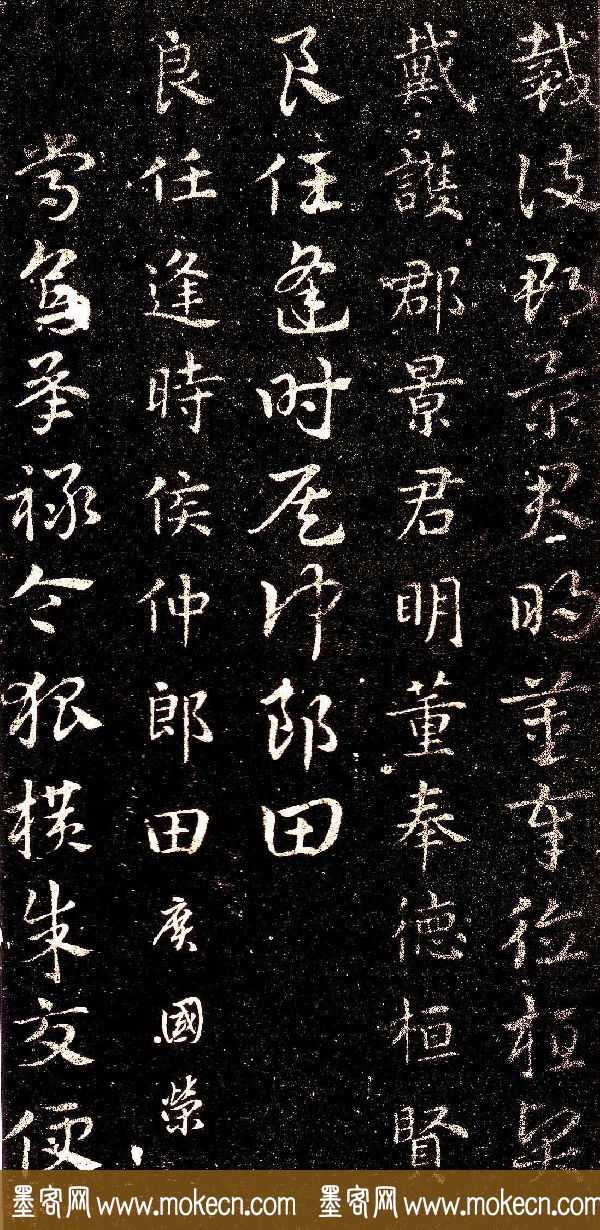 戴護郡景君明董奉德桓賢
戴護郡景君明董奉德桓賢
良任逢時侯仲郎田
良任逢時侯仲郎田廣國榮
常烏承祿令狐橫朱交便
墨客网 www.mokecn.com 墨客网 www.mokecn.com